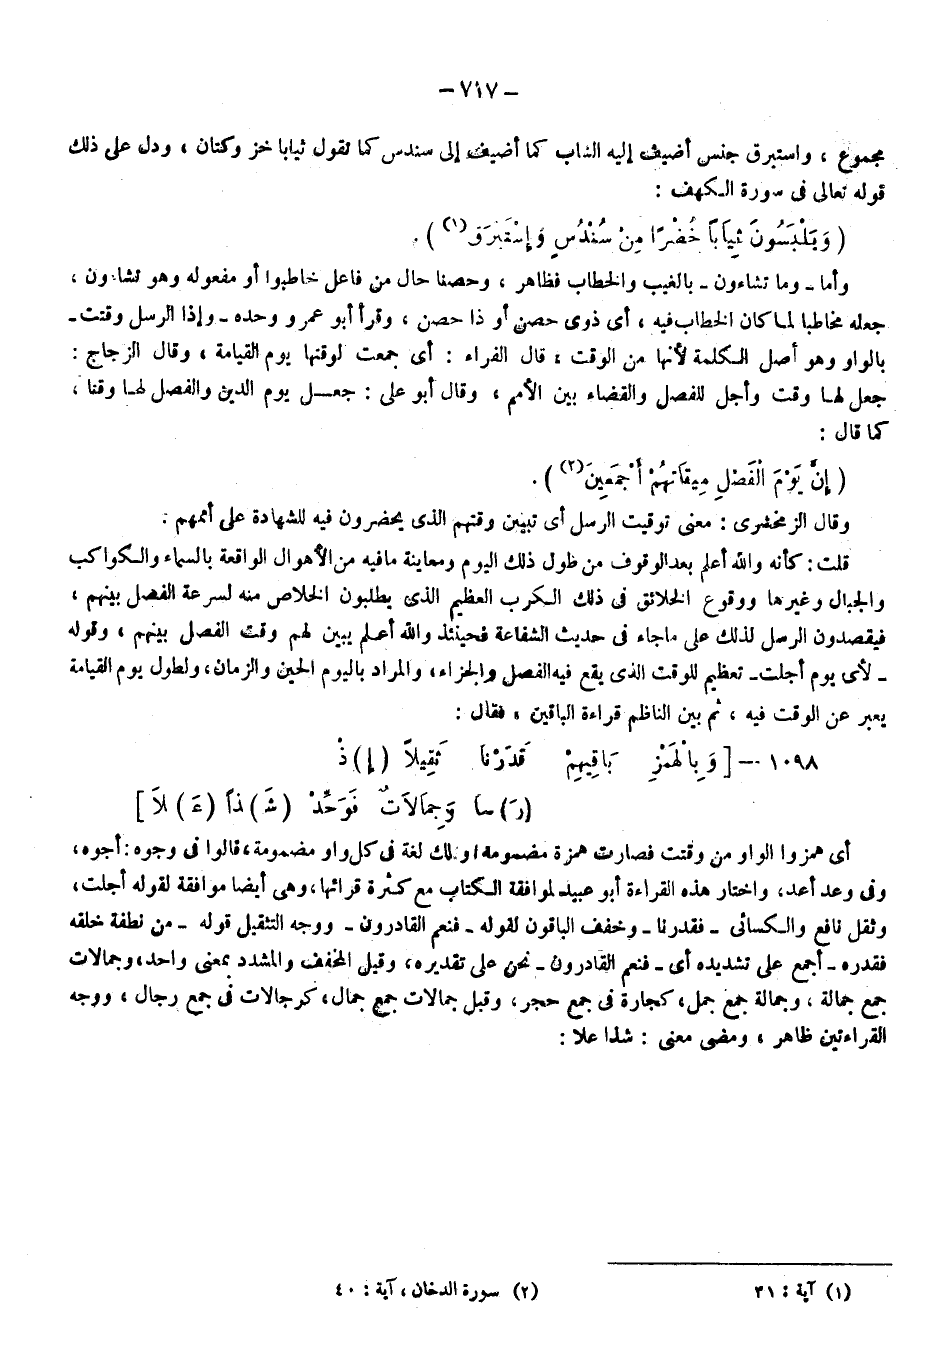 – ٧١٧ –
مجموع ، واستبرق جنس أضيف إليه الثياب كما أضيف إلى سندس كما تقول ثيابا خز وكتان ، ودل على ذلك
قوله تعالى فى سورة الكهف :
( وَيَلْبَسُونَ ثِيَاباً خُضْرًا مِنْ سُنْدُسٍ وَإِسْتَبْرَقٍ(١) ) .
وأما ـ وما تشاءون ـ بالغيب والخطاب فظاهر ، وحصنا حال من فاعل خاطبوا أو مفعوله وهو تشاءون ،
جعله مخاطبا لما كان الخطاب فيه ، أى ذوى حصن أو ذا حصن ، وقرأ أبو عمرو وحده ـ وإذا الرسل وقتت ـ
بالواو وهو أصل الكلمة لأنها من الوقت ، قال الفراء : أى جمعت لوقتها يوم القيامة ، وقال الزجاج :
جعل لها وقت وأجل للفصل والقضاء بين الأمم ، وقال أبو على : جعل يوم الدين والفصل لها وقتا ،
كما قال :
( إِنَّ يَوْمَ الْفَصْلِ مِيقَاتُهُمْ أَجْمَعِينَ(٢) ) .
وقال الزمخشرى : معنى توقيت الرسل أى تبيين وقتهم الذى يحضرون فيه للشهادة على أممهم .
قلت : كأنه والله أعلم بعد الوقوف من طول ذلك اليوم ومعاينة مافيه من الأهوال الواقعة بالسماء والكواكب
والجبال وغيرها ووقوع الخلائق فى ذلك الكرب العظيم الذى يطلبون الخلاص منه لسرعة الفصل بينهم ،
فيقصدون الرسل لذلك على ماجاء فى حديث الشفاعة فحينئذ والله أعلم يبين لهم وقت الفصل بينهم ، وقوله
ـ لأى يوم أجلت ـ تعظيم للوقت الذى يقع فيه الفصل والجزاء ، والمراد باليوم الحين والزمان ، ولطول يوم القيامة
يعبر عن الوقت فيه ، ثم بين الناظم قراءة الباقين ، فقال :
١٠٩٨ – [ وَبِالْهَمْزِ بَاقِيهِمْ قَدَرْنا ثَقِيلاً (إ)ذْ
(رَ)سا وَجِمَالَاتٌ فَوَحِّدْ (شَ)ذاً (عَ)لاَ ]
أى همزوا الواو من وقتت فصارت همزة مضمومة وتلك لغة فى كل واو مضمومة ، قالوا فى وجوه : أجوه ،
وفى وعد أعد ، واختار هذه القراءة أبو عبيد لموافقة الكتاب مع كثرة قرائها ، وهى أيضا موافقة لقوله أجلت ،
وثقل نافع والكسائى ـ فقدرنا ـ وخفف الباقون لقوله ـ فنعم القادرون ـ ووجه التثقيل قوله ـ من نطفة خلقه
فقدره ـ أجمع على تشديده أى ـ فنعم القادرون ـ نحن على تقديره ، وقيل المخفف والمشدد بمعنى واحد ، وجمالات
جمع جمالة ، وجمالة جمع جمل ، كحجارة فى جمع حجر ، وقيل جمالات جمع جمال ، كرجالات فى جمع رجال ، ووجه
القراءتين ظاهر ، ومضى معنى : شذا علا :
(١) آية : ٣١
(٢) سورة الدخان ، آية : ٤٠